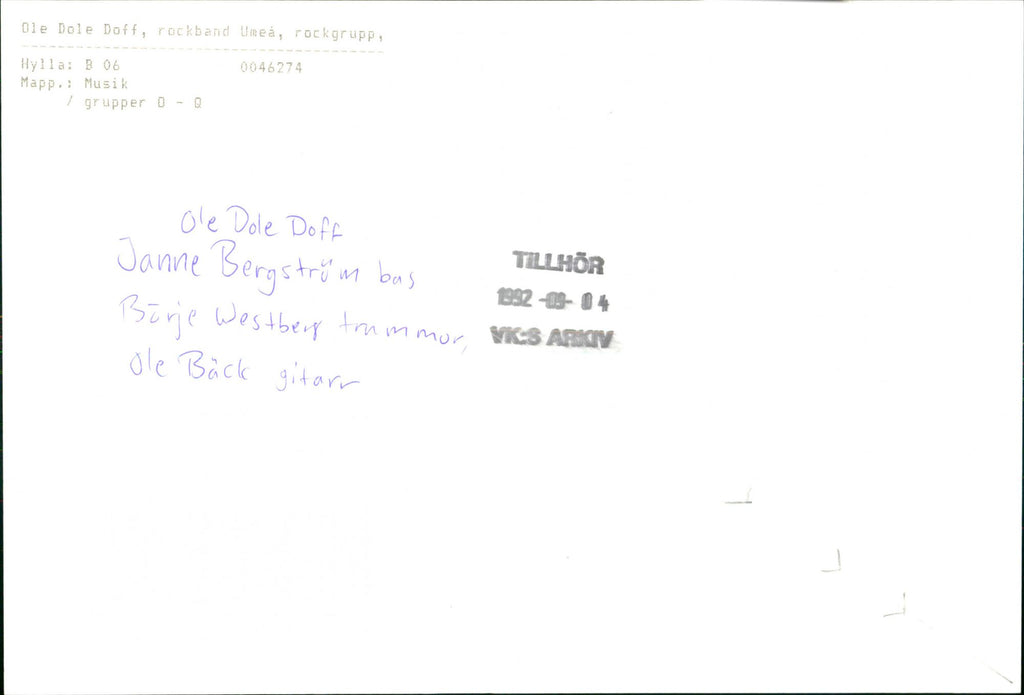 Ole Dole Doff, rockband Umeå, rockgrupp,
Hylla: B 06 0046274
Mapp.: Musik
/ grupper O - Q
Ole Dole Doff
Janne Bergström bas
Börje Westberg trummor,
Ole Bäck gitarr
TILLHÖR
1992 -09- 04
VK:S ARKIV